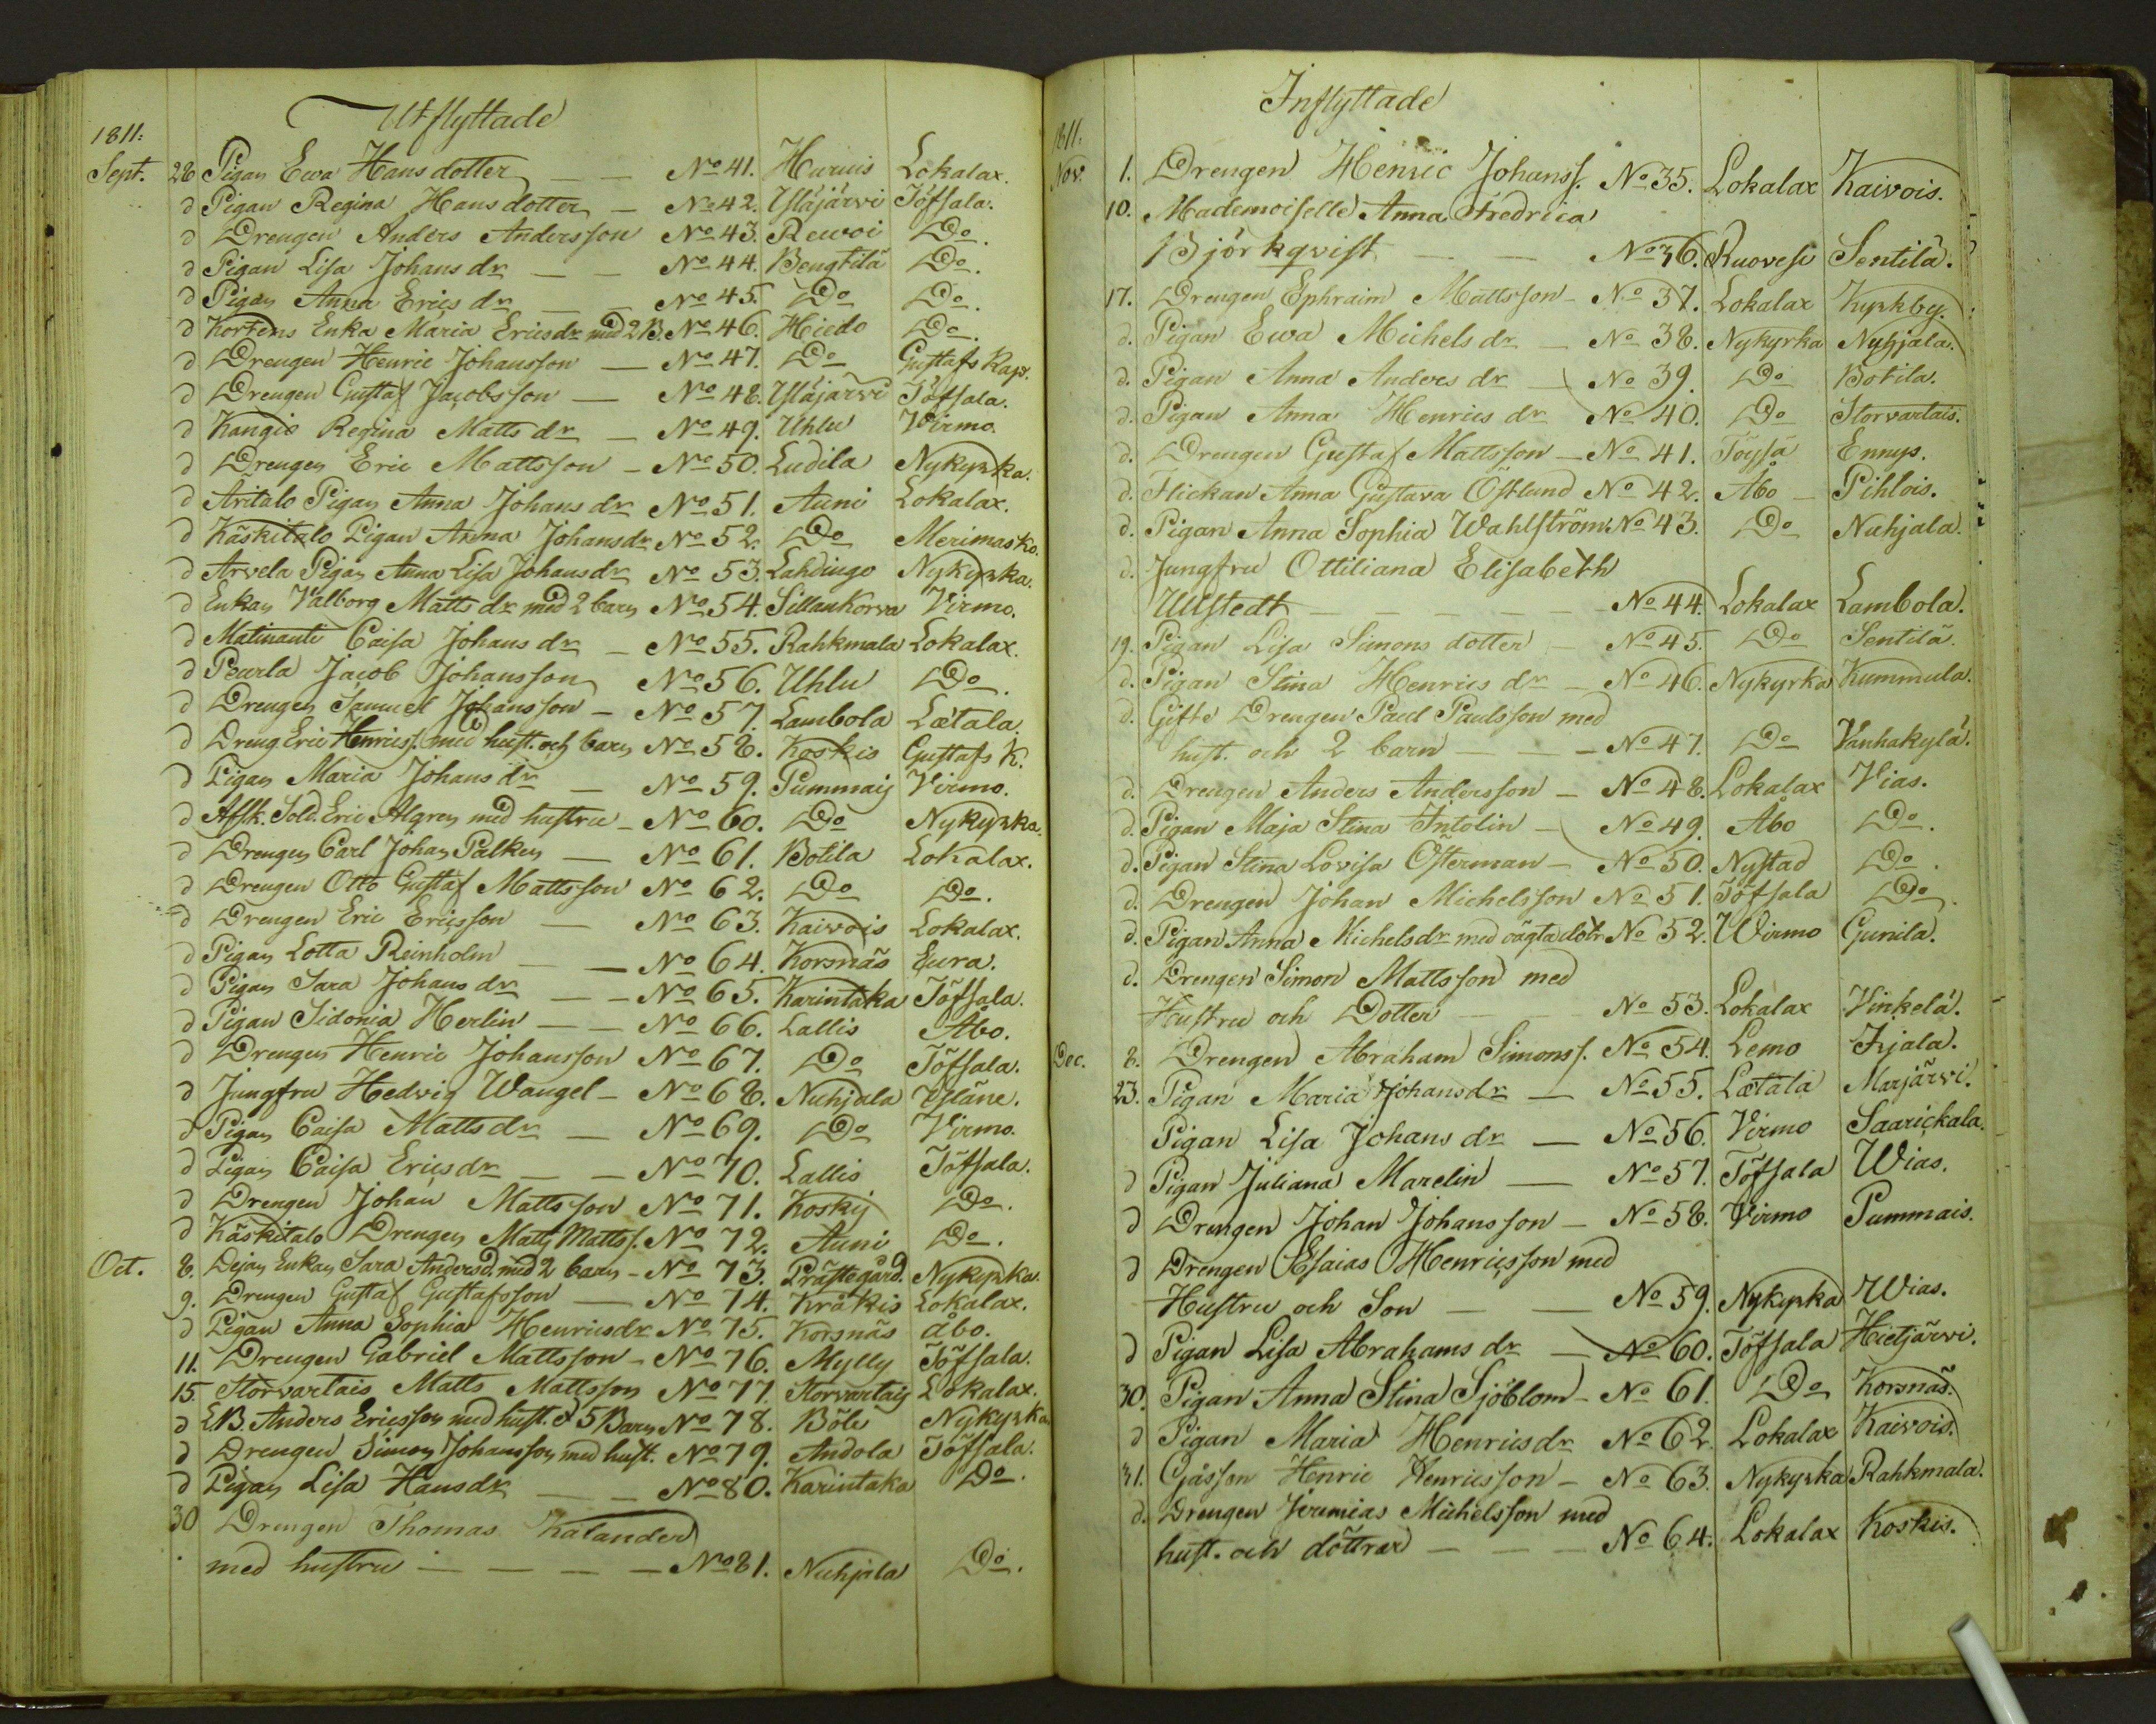 Utflyttade
1811:
Sept. 28 Pigan Ewa Hansdotter — — No 41. Haruis Lokalax.
d Pigan Regina Hansdotter — No 42. Yläjärvi Töfsala.
d Drengen Anders Andersson No 43. Rewoi Do.
d Pigan Lisa Johans dr — — No 44. Bengtilä Do.
d Pigan Anna Erics dr — No 45. Do Do.
d Kortens Enka Maria Ericsdr med 2 B. No 46. Hiedo Do.
d Drengen Henric Johansson — No 47. Do Gustafs Kap.
d Drengen Gustaf Jacobsson — No 48. Yläjärvi Töfsala.
d Kangis Regina Matts dr — No 49. Uhlu Virmo.
d Drengen Eric Mattsson — No 50. Ludila Nykyrka.
d Aritalo Pigan Anna Johans dr No 51. Auni Lokalax.
d Käskitalo Pigan Anna Johansdr No 52. Do Merimasko.
d Arvela Pigan Anna Lisa Johansdr No 53. Lahdingo Nykyrka.
d Enkan Valborg Matts dr med 2 barn No 54. Sillankorva Virmo.
d Matinanti Caisa Johans dr — No 55. Rahkmala Lokalax.
d Pearla Jacob Johansson No 56. Uhlu Do.
d Drengen Samuel Johansson — No 57. Lambola Lætala.
d Dreng Eric Henricss. med hust. och barn No 58. Koskis Gustafs K.
d Pigan Maria Johans dr — No 59. Pummaij Virmo.
d Afsk. Sold. Eric Algren med hustru — No 60. Do Nykyrka.
d Drengen Carl Johan Palken — No 61. Botila Lokalax.
d Drengen Otto Gustaf Mattsson No 62. Do Do.
d Drengen Eric Ericsson — No 63. Kaivois Lokalax.
d Pigan Lotta Reinholm — No 64. Korsnäs Eura.
d Pigan Sara Johans dr — — No 65. Karintaka Töfsala.
d Pigan Sidonia Herlin — — No 66. Lallis Åbo.
d Drengen Henric Johansson No 67. Do Töfsala.
d Jungfru Hedvig Wangel — No 68. Nuhjala Yläne.
d Pigan Caisa Matts dr — No 69. Do Virmo.
d Pigan Caisa Ericsdr — — No 70. Lallis Töfsala.
d Drengen Johan Mattsson No 71. Koskij Do.
d Käskitalo Drengen Matts Matts. No 72. Auni Do.
Oct. 8. Dejan Enkan Sara Andersd. med 2 barn — No 73. Prästegård. Nykyrka.
9. Drengen Gustaf Gustafsson — No 74. Kråkis Lokalax.
d Pigan Anna Sophia Henricsdr No 75. Korsnäs åbo.
11. Drengen Gabriel Mattsson — No 76. Mylly Töfsala.
15. Storvartais Matts Mattsson No 77. Storvartaij Lokalax.
d LB. Anders Ericsson med hust. & 5 Barn No 78. Böle Nykyrka
d Drengen Simon Johansson med hust. No 79. Andola Töfsala.
d Pigan Lisa Hansdr — — No 80. Karintaka Do.
30 Drengen Thomas Kalander
med hustru — — — — No 81. Nuhjala Do.
Inflyttade
1811.
Nov. 1. Drengen Henric Johanss. No 35. Lokalax Kaivois.
10. Mademoiselle Anna Fredrica
Björkqvist — — No 36. Ruovesi Sentilä.
17. Drengen Ephraim Mattsson — No 37. Lokalax Kyrkby.
d. Pigan Ewa Michels dr — No 38. Nykyrka Nuhjala.
d. Pigan Anna Anders dr — No 39. Do Botila.
d. Pigan Anna Henrics dr No 40. Do Storvartais.
d. Drengen Gustaf Mattsson — No 41. Töysä Ennys.
d. Flickan Anna Gustava Östlund No 42. Åbo — Pihlois.
d. Pigan Anna Sophia Wahlström No 43. Do Nuhjala.
d. Jungfru Ottiliana Elisabeth
Ulstedt — — — — No 44. Lokalax Lambola.
19. Pigan Lisa Simons dotter — No 45. Do Sentilä.
d. Pigan Stina Henrics dr — No 46. Nykyrka Kummula.
d. Gifte Drengen Paul Paulsson med
hust. och 2 barn — — — No 47. Do Vanhakylä.
d. Drengen Anders Andersson — No 48. Lokalax Vias.
d. Pigan Maja Stina Intolin — No 49. Åbo Do.
d. Pigan Stina Lovisa Österman — No 50. Nystad Do.
d. Drengen Johan Michelsson No 51. Töfsala Do.
d. Pigan Anna Michelsdr med oägta dotr No 52. Wirmo Gunila.
d. Drengen Simon Mattsson med
Hustru och Dotter — No 53. Lokalax Vinkelä.
Dec. 8. Drengen Abraham Simonss. No 54. Lemo Irjala.
23. Pigan Maria Johansdr — No 55. Lætala Marjärvi.
Pigan Lisa Johans dr — No 56. Virmo Saarickala.
d Pigan Juliana Marelin — No 57. Töfsala Wias.
d Drengen Johan Johansson — No 58. Virmo Pummais.
d Drengen Esaias Henricsson med
Hustru och Son — — No 59. Nykyrka Wias.
d Pigan Lisa Abrahams dr — No 60. Töfsala Hietjärvi.
30. Pigan Anna Stina Sjöblom — No 61. Do Korsnäs.
d Pigan Maria Henricsdr No 62. Lokalax Kaivois.
31. Gåssen Henric Henricsson — No 63. Nykyrka Rahkmala.
d. Drengen Jeremias Michelsson med
hust. och döttrar — — — No 64. Lokalax Koskis.